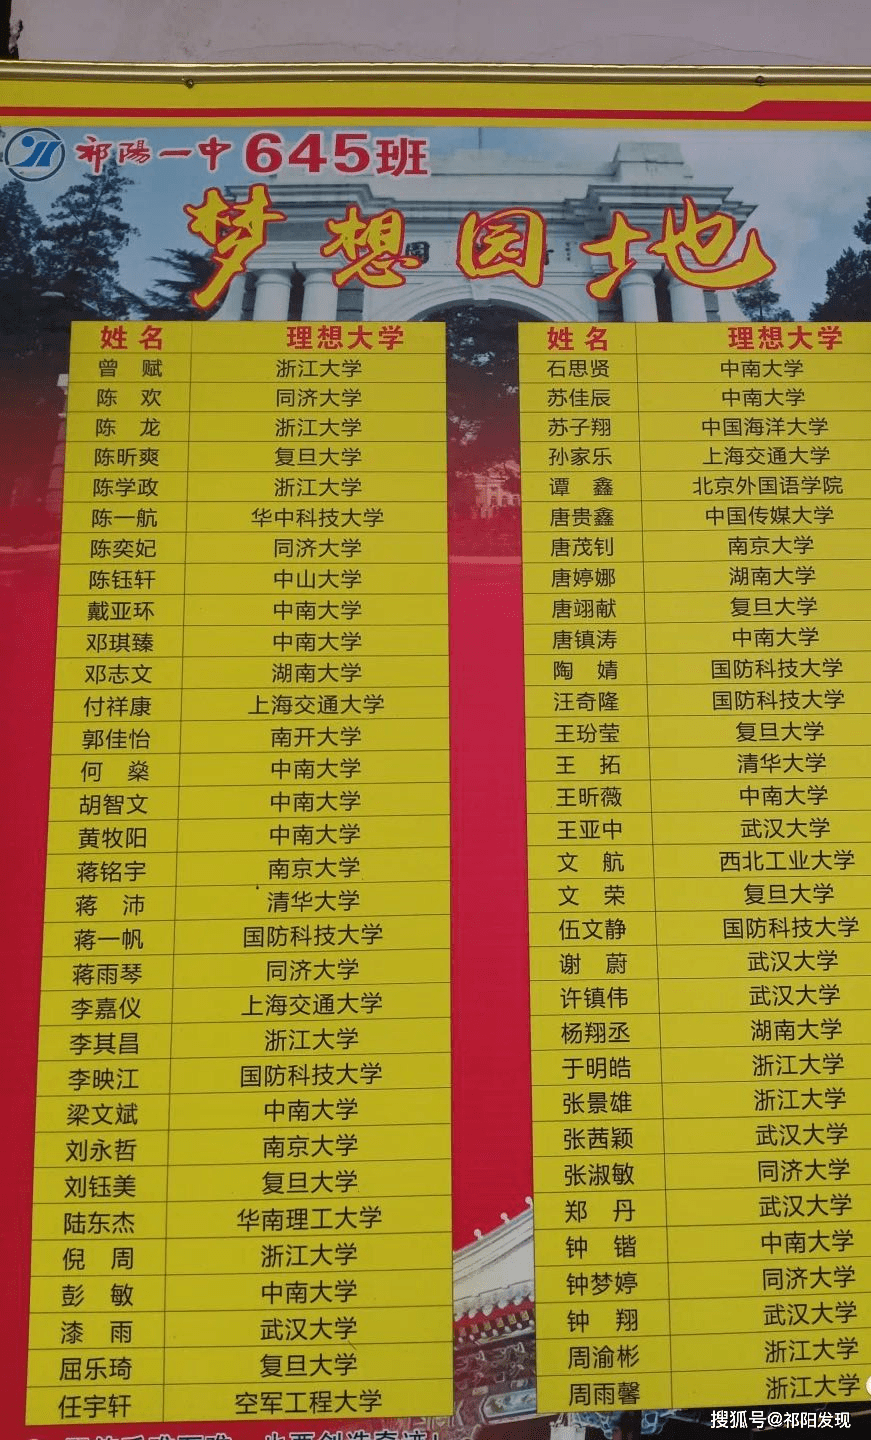 祁陽一中645班
梦想园地
姓名 理想大学
曾赋 浙江大学
陈欢 同济大学
陈龙 浙江大学
陈昕爽 复旦大学
陈学政 浙江大学
陈一航 华中科技大学
陈奕妃 同济大学
陈钰轩 中山大学
戴亚环 中南大学
邓琪臻 中南大学
邓志文 湖南大学
付祥康 上海交通大学
郭佳怡 南开大学
何燊 中南大学
胡智文 中南大学
黄牧阳 中南大学
蒋铭宇 南京大学
蒋沛 清华大学
蒋一帆 国防科技大学
蒋雨琴 同济大学
李嘉仪 上海交通大学
李其昌 浙江大学
李映江 国防科技大学
梁文斌 中南大学
刘永哲 南京大学
刘钰美 复旦大学
陆东杰 华南理工大学
倪周 浙江大学
彭敏 中南大学
漆雨 武汉大学
屈乐琦 复旦大学
任宇轩 空军工程大学
姓名 理想大学
石思贤 中南大学
苏佳辰 中南大学
苏子翔 中国海洋大学
孙家乐 上海交通大学
谭鑫 北京外国语学院
唐贵鑫 中国传媒大学
唐茂钊 南京大学
唐婷娜 湖南大学
唐翊献 复旦大学
唐镇涛 中南大学
陶婧 国防科技大学
汪奇隆 国防科技大学
王玢莹 复旦大学
王拓 清华大学
王昕薇 中南大学
王亚中 武汉大学
文航 西北工业大学
文荣 复旦大学
伍文静 国防科技大学
谢蔚 武汉大学
许镇伟 武汉大学
杨翔丞 湖南大学
于明皓 浙江大学
张景雄 浙江大学
张茜颖 武汉大学
张淑敏 同济大学
郑丹 武汉大学
钟锴 中南大学
钟梦婷 同济大学
钟翔 武汉大学
周渝彬 浙江大学
周雨馨 浙江大学
也要创造奇迹!
搜狐号@祁阳发现